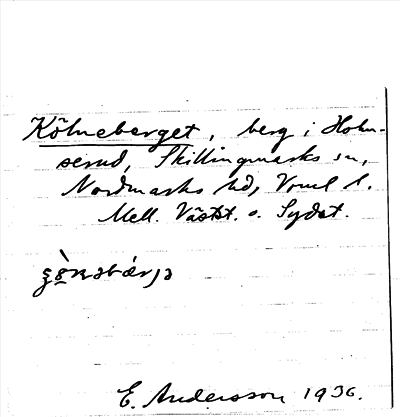 Kölneberget, berg i Holm-
serud, Skillingmarks sn,
Nordmarks hd, Vrml l.
Mell. Västst. o. Sydst.
E. Andersson 1936.